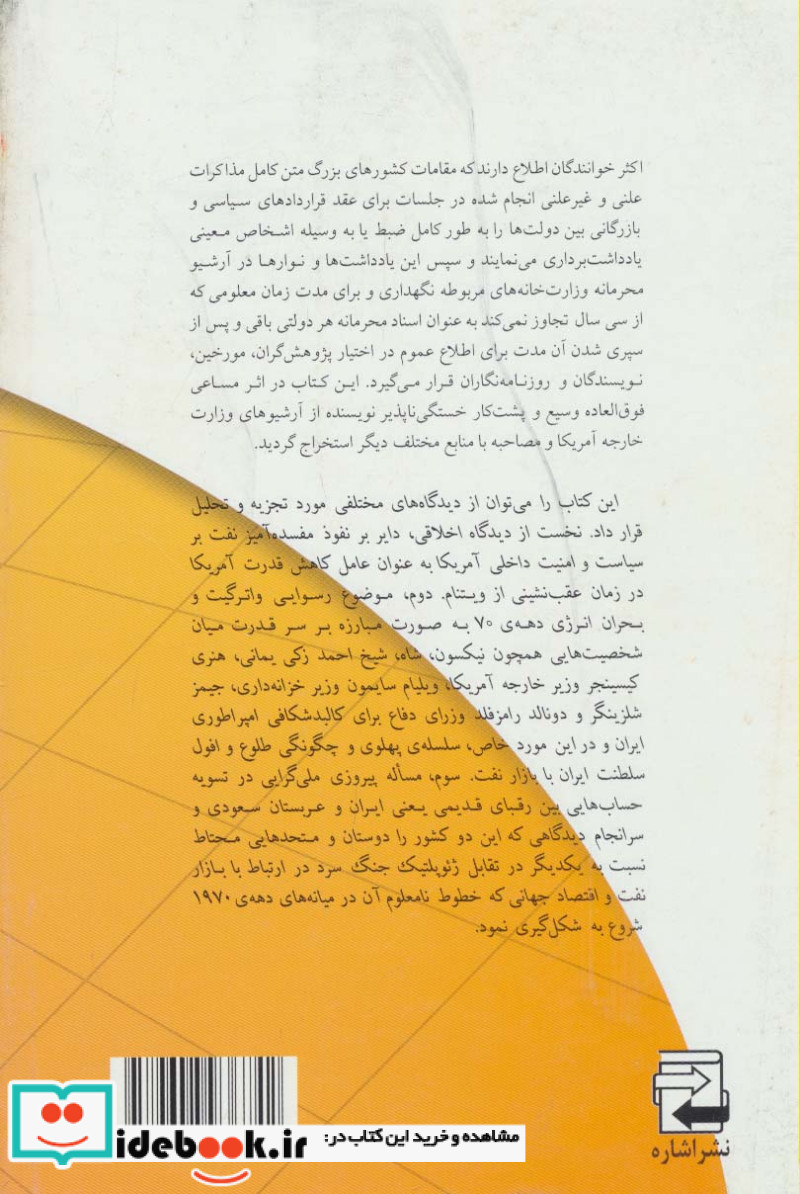 اکثر خوانندگان اطلاع دارند که مقامات کشورهای بزرگ متن کامل مذاکرات
علنی و غیرعلنی انجام شده در جلسات برای عقد قراردادهای سیاسی و
بازرگانی بین دولت‌ها را به طور کامل ضبط یا به وسیله اشخاص معینی
یادداشت‌برداری می‌نمایند و سپس این یادداشت‌ها و نوارها در آرشیو
محرمانه وزارت‌خانه‌های مربوطه نگهداری و برای مدت زمان معلومی که
از سی سال تجاوز نمی‌کند به عنوان اسناد محرمانه هر دولتی باقی و پس از
سپری شدن آن مدت برای اطلاع عموم در اختیار پژوهش‌گران، مورخین،
نویسندگان و روزنامه‌نگاران قرار می‌گیرد. این کتاب در اثر مساعی
فوق‌العاده وسیع و پشت‌کار خستگی‌ناپذیر نویسنده از آرشیوهای وزارت
خارجه آمریکا و مصاحبه با منابع مختلف دیگر استخراج گردید.
این کتاب را می‌توان از دیدگاه‌های مختلفی مورد تجزیه و تحلیل
قرار داد. نخست از دیدگاه اخلاقی، دایر بر نفوذ مفسده‌آمیز نفت بر
سیاست و امنیت داخلی آمریکا به عنوان عامل کاهش قدرت آمریکا
در زمان عقب‌نشینی از ویتنام. دوم، موضوع رسوایی واترگیت و
بحران انرژی دهه‌ی ۷۰ به صورت مبارزه بر سر قدرت میان
شخصیت‌هایی همچون نیکسون، شاه، شیخ احمد زکی یمانی، هنری
کیسینجر وزیر خارجه آمریکا، ویلیام سایمون وزیر خزانه‌داری، جیمز
شلزینگر و دونالد رامزفلد وزرای دفاع برای کالبدشکافی امپراطوری
ایران و در این مورد خاص، سلسله‌ی پهلوی و چگونگی طلوع و افول
سلطنت ایران با بازار نفت. سوم، مسأله پیروزی ملی‌گرایی در تسویه
حساب‌هایی بین رقبای قدیمی یعنی ایران و عربستان سعودی و
سرانجام دیدگاهی که این دو کشور را دوستان و متحدهایی محتاط
نسبت به یکدیگر در تقابل ژئوپلتیک جنگ سرد در ارتباط با بازار
نفت و اقتصاد جهانی که خطوط نامعلوم آن در میانه‌های دهه‌ی ۱۹۷۰
شروع به شکل‌گیری نمود.
نشر اشاره
مشاهده و خرید این کتاب در:
idebook.ir